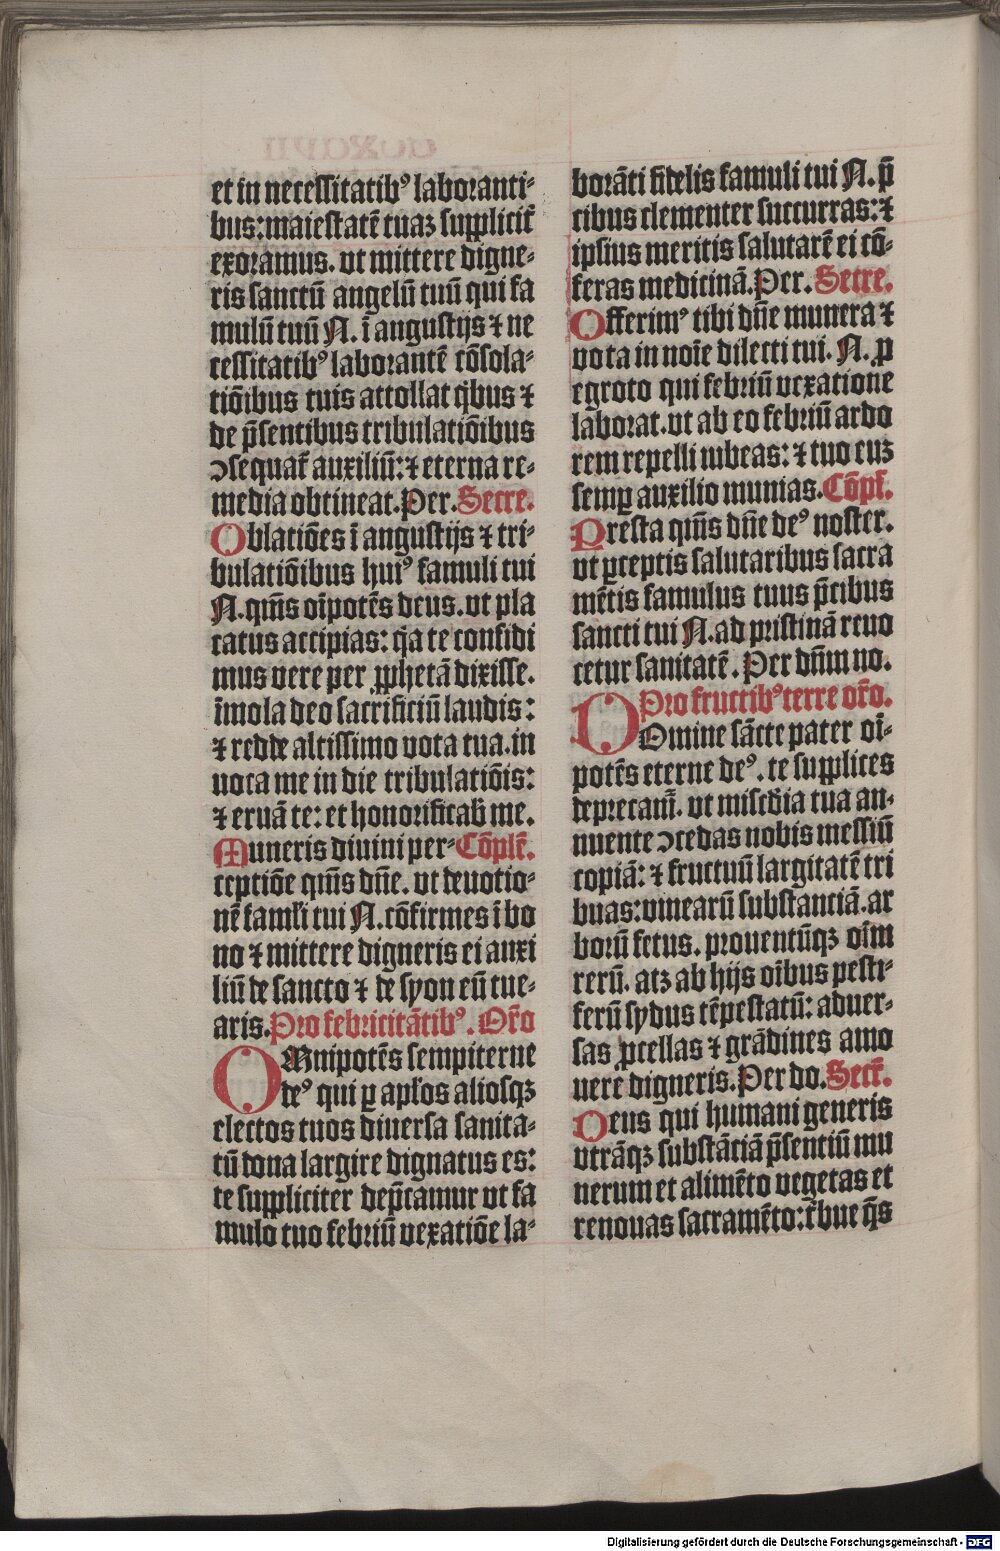 et in necessitatibꝰ laboranti⸗
bus: maiestatē tuaꝫ suppliciť
exoramus. vt mittere digne⸗
ris sanctū angelū tuū qui fa
mulū tuū N. ī angustijs ⁊ ne
cessitatibꝰ laborantē cōsola⸗
tiōibus tuis attollat qͥbus ⁊
de p̄sentibus tribulatiōibus
ↄsequať auxiliū: ⁊ eterna re⸗
media obtineat. Per. Secre.
Oblatiōes ī angustijs ⁊ tri⸗
bulatiōibus huiꝰ famuli tui
N. qm̄s oīpotēs deus. vt pla
catus accipias: qͥa te confidi
mus vere per ꝓphetā dixisse.
īmola deo sacrificiū laudis:
⁊ redde altissimo vota tua. in
uoca me in die tribulatiōis:
⁊ eruā te: et honorificab̄ me.
Muneris diuini per⸗ Cōplē.
ceptiōe qm̄s dn̄e. vt deuotio⸗
nē famľi tui N. cōfirmes ī bo
no ⁊ mittere digneris ei auxi
liū de sancto ⁊ de syon eū tue⸗
aris. Pro febricitātibꝰ. Or̄o
OMnipotēs sempiterne
deꝰ qui ꝑ apľos aliosqꝫ
electos tuos diuersa sanita⸗
tū dona largire dignatus es:
te suppliciter dep̄camur vt fa
mulo tuo febriū vexatiōe la⸗
borāti fidelis famuli tui N. p̄
cibus clementer succurras: ⁊
ipsius meritis salutarē ei cō⸗
feras medicinā. Per. Secre.
Offerimꝰ tibi dn̄e munera ⁊
vota in noīe dilecti tui. N. ꝓ
egroto qui febriū vexatione
laborat. vt ab eo febriū ardo
rem repelli iubeas: ⁊ tuo euꝫ
semꝑ auxilio munias. Cōpľ.
Presta qm̄s dn̄e deꝰ noster.
vt ꝑceptis salutaribus sacra
mētis famulus tuus p̄cibus
sancti tui N. ad pristinā reuo
cetur sanitatē. Per dn̄m no.
Pro fructibꝰ terre or̄o.
DOmine sācte pater oī⸗
potēs eterne deꝰ. te supplices
deprecam̄. vt misc̄dia tua an⸗
nuente ↄcedas nobis messiū
copiā: ⁊ fructuū largitatē tri
buas: vinearū substanciā. ar
borū fetus. prouentūqꝫ oīm
rerū. atꝫ ab hijs oībus pesti⸗
ferū sydus tēpestatū: aduer⸗
sas ꝓcellas ⁊ grādines amo
uere digneris. Per do. Secř.
Deus qui humani generis
vtrāqꝫ substāciā p̄sentiū mu
nerum et alimēto vegetas et
renouas sacramēto: tͥbue q̄s
Digitalisierung gefördert durch die Deutsche Forschungsgemeinschaft - DFG